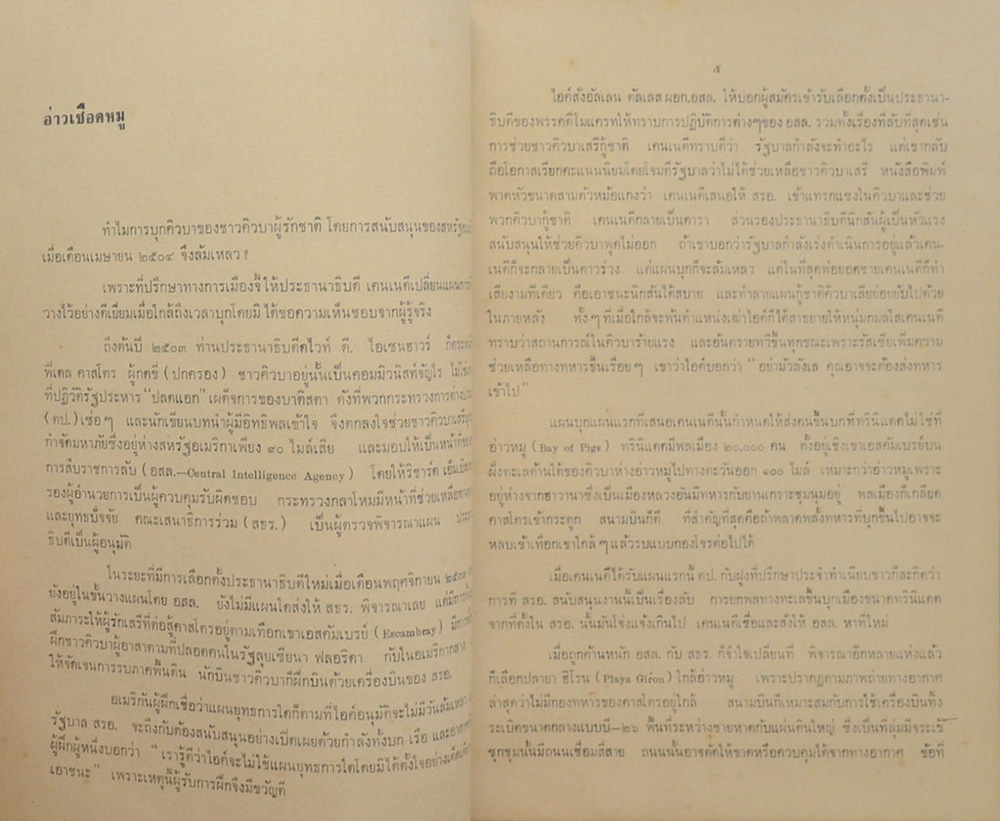 อ่าวเชือดหมู
ทำไมการบุกคิวบาของชาวคิวบาผู้รักชาติ โดยการสนับสนุนของสหรัฐ
เมื่อเดือนเมษายน ๒๕๐๔ จึงล้มเหลว?
เพราะที่ปรึกษาทางการเมืองจี้ให้ประธานาธิบดี เคนเนดีเปลี่ยนแผนการ
วางไว้อย่างดีเยี่ยมเมื่อใกล้ถึงเวลาบุกโดยมิได้ขอความเห็นชอบจากผู้รู้จริง
ถึงต้นปี ๒๕๐๓ ท่านประธานาธิบดีดไวท์ ดี. ไอเซนฮาวร์ ก็ตระหนัก
ฟิเดล คาสโตร ผู้กดขี่ (ปกครอง) ชาวคิวบาอยู่นั้นเป็นคอมมิวนิสท์จัญไร ไม่ใช่
ที่ปฏิวัติรัฐประหาร “ปลดแอก” เผด็จการของบาติสตา ดังที่พวกกระทรวงการต่าง
(คป.) เซ่อๆ และนักเขียนบทนำผู้มีอิทธิพลเข้าใจ จึงตกลงใจช่วยชาวคิวบาเสรี
กำจัดมหาภัยซึ่งอยู่ห่างสหรัฐอเมริกาเพียง ๙๐ ไมล์เสีย และมอบให้เป็นหน้าที่ของ
การสืบราชการลับ (อสล.—Central Intelligence Agency) โดยให้ริชาร์ด เอ็ม.
รองผู้อำนวยการเป็นผู้ควบคุมรับผิดชอบ กระทรวงกลาโหมมีหน้าที่ช่วยเหลือทาง
และยุทธปัจจัย คณะเสนาธิการร่วม (สธร.) เป็นผู้ตรวจพิจารณาแผน ประ
ธิบดีเป็นผู้อนุมัติ
ในระยะที่มีการเลือกตั้งประธานาธิบดีใหม่เมื่อเดือนพฤศจิกายน ๒๕๐๓
ยังอยู่ในขั้นวางแผนโดย อสล. ยังไม่มีแผนใดส่งให้ สธร. พิจารณาเลย แต่มีการ
สัมภาระให้ผู้รักเสรีที่ต่อสู้คาสโตรอยู่ตามเทือกเขาเอสคัมเบรย์ (Escambray) มีการ
ฝึกชาวคิวบาผู้อาสาตามที่ปลอดคนในรัฐลุยเซียนา ฟลอริดา กับในอเมริกากลาง
ให้จัดเจนการรบภาคพื้นดิน นักบินชาวคิวบาก็ฝึกบินด้วยเครื่องบินของ สรอ.
อเมริกันผู้ฝึกเชื่อว่าแผนยุทธการใดก็ตามที่ไอค์อนุมัติจะไม่มีวันล้มเหลว
รัฐบาล สรอ. จะถึงกับต้องสนับสนุนอย่างเปิดเผยด้วยกำลังทั้งบก เรือ และอากาศ
ผู้ฝึกผู้หนึ่งบอกว่า “เรารู้ดีว่าไอค์จะไม่ใช้แผนยุทธการใดโดยมิได้ตั้งใจอย่าง
เอาชนะ” เพราะเหตุนี้ผู้รับการฝึกจึงมีขวัญดี
๕
ไอค์สั่งอัลเลน ดัลเลส ผอก.อสล. ให้บอกผู้สมัครเข้ารับเลือกตั้งเป็นประธานา-
ธิบดีของพรรคดีโมแครทให้ทราบการปฏิบัติการต่างๆของ อสล. รวมทั้งเรื่องที่ลับที่สุดเช่น
การช่วยชาวคิวบาเสรีกู้ชาติ เคนเนดีทราบดีว่า รัฐบาลกำลังจะทำอะไร แต่เขากลับ
ถือโอกาสเรียกคะแนนนิยมโดยโจมตีรัฐบาลว่าไม่ได้ช่วยเหลือชาวคิวบาเสรี หนังสือพิมพ์
พาดหัวขนาดสามตัวหม้อแกงว่า เคนเนดีเสนอให้ สรอ. เข้าแทรกแซงในคิวบาและช่วย
พวกคิวบากู้ชาติ เคนเนดีกลายเป็นดารา ส่วนรองประธานาธิบดีนิกสันผู้เป็นหัวแรง
สนับสนุนให้ช่วยคิวบาพูดไม่ออก ถ้าเขาบอกว่ารัฐบาลกำลังเร่งดำเนินการอยู่แล้วเคน-
เนดีก็จะกลายเป็นดาวร่วง แต่แผนบุกก็จะล้มเหลว แต่ในที่สุดพ่อยอดชายเคนเนดีก็ทำ
เสียงามทีเดียว คือเอาชนะนิกสันได้สบาย และทำลายแผนกู้ชาติคิวบาเสียย่อยยับไปด้วย
ในภายหลัง ทั้งๆ ที่เมื่อใกล้จะพ้นตำแหน่งเฒ่าไอค์ก็ได้สาธยายให้หนุ่มกมลใสเคนเนดี
ทราบว่าสถานการณ์ในคิวบาร้ายแรง และอันตรายทวีขึ้นทุกขณะเพราะรัสเซียเพิ่มความ
ช่วยเหลือทางทหารขึ้นเรื่อยๆ เขาว่าไอค์บอกว่า “อย่ามัวลังเล คุณอาจจะต้องส่งทหาร
เข้าไป”
แผนบุกแผนแรกที่เสนอเคนเนดีนั้นกำหนดให้ส่งคนขึ้นบกที่ทรินิแดดไม่ใช่ที่
อ่าวหมู (Bay of Pigs) ทรินิแดดมีพลเมือง ๒๐,๐๐๐ คน ตั้งอยู่เชิงเขาเอสคัมเบรย์บน
ฝั่งทะเลด้านใต้ของคิวบาห่างอ่าวหมูไปทางตะวันออก ๑๐๐ ไมล์ เหมาะกว่าอ่าวหมูเพราะ
อยู่ห่างจากฮาวานาซึ่งเป็นเมืองหลวงอันมีทหารกับยานเกราะชุมนุมอยู่ พลเมืองก็เกลียด
คาสโตรเข้ากระดูก สนามบินก็ดี ที่สำคัญที่สุดคือถ้าพลาดพลั้งทหารที่บุกขึ้นไปอาจจะ
หลบเข้าเทือกเขาใกล้ๆ แล้วรบแบบกองโจรต่อไปได้
เมื่อเคนเนดีได้รับแผนแรกนี้ คป. กับฝูงที่ปรึกษาประจำทำเนียบขาวก็สะกิดว่า
การที่ สรอ. สนับสนุนงานนี้เป็นเรื่องลับ การยกพลทางทะเลขึ้นบุกเมืองขนาดทรินิแดด
จากที่ตั้งใน สรอ. นั้นมันโจ่งแจ้งเกินไป เคนเนดีเชื่อและสั่งให้ อสล. หาที่ใหม่
เมื่อถูกค้านหนัก อสล. กับ สธร. ก็จำใจเปลี่ยนที่ พิจารณาอีกหลายแห่งแล้ว
ก็เลือกปลายา ฮิโรน (Playa Giron) ใกล้อ่าวหมู เพราะปรากฏตามภาพถ่ายทางอากาศ
ล่าสุดว่าไม่มีกองทหารของคาสโตรอยู่ใกล้ สนามบินก็เหมาะสมกับการใช้เครื่องบินทิ้ง
ระเบิดขนาดกลางแบบบี-๒๖ พื้นที่ระหว่างชายหาดกับแผ่นดินใหญ่ ซึ่งเป็นที่ลุ่มมีจระเข้
ชุกชุมนั้นมีถนนเชื่อมสี่สาย ถนนนั้นอาจตัดให้ขาดหรือควบคุมได้จากทางอากาศ ข้อที่